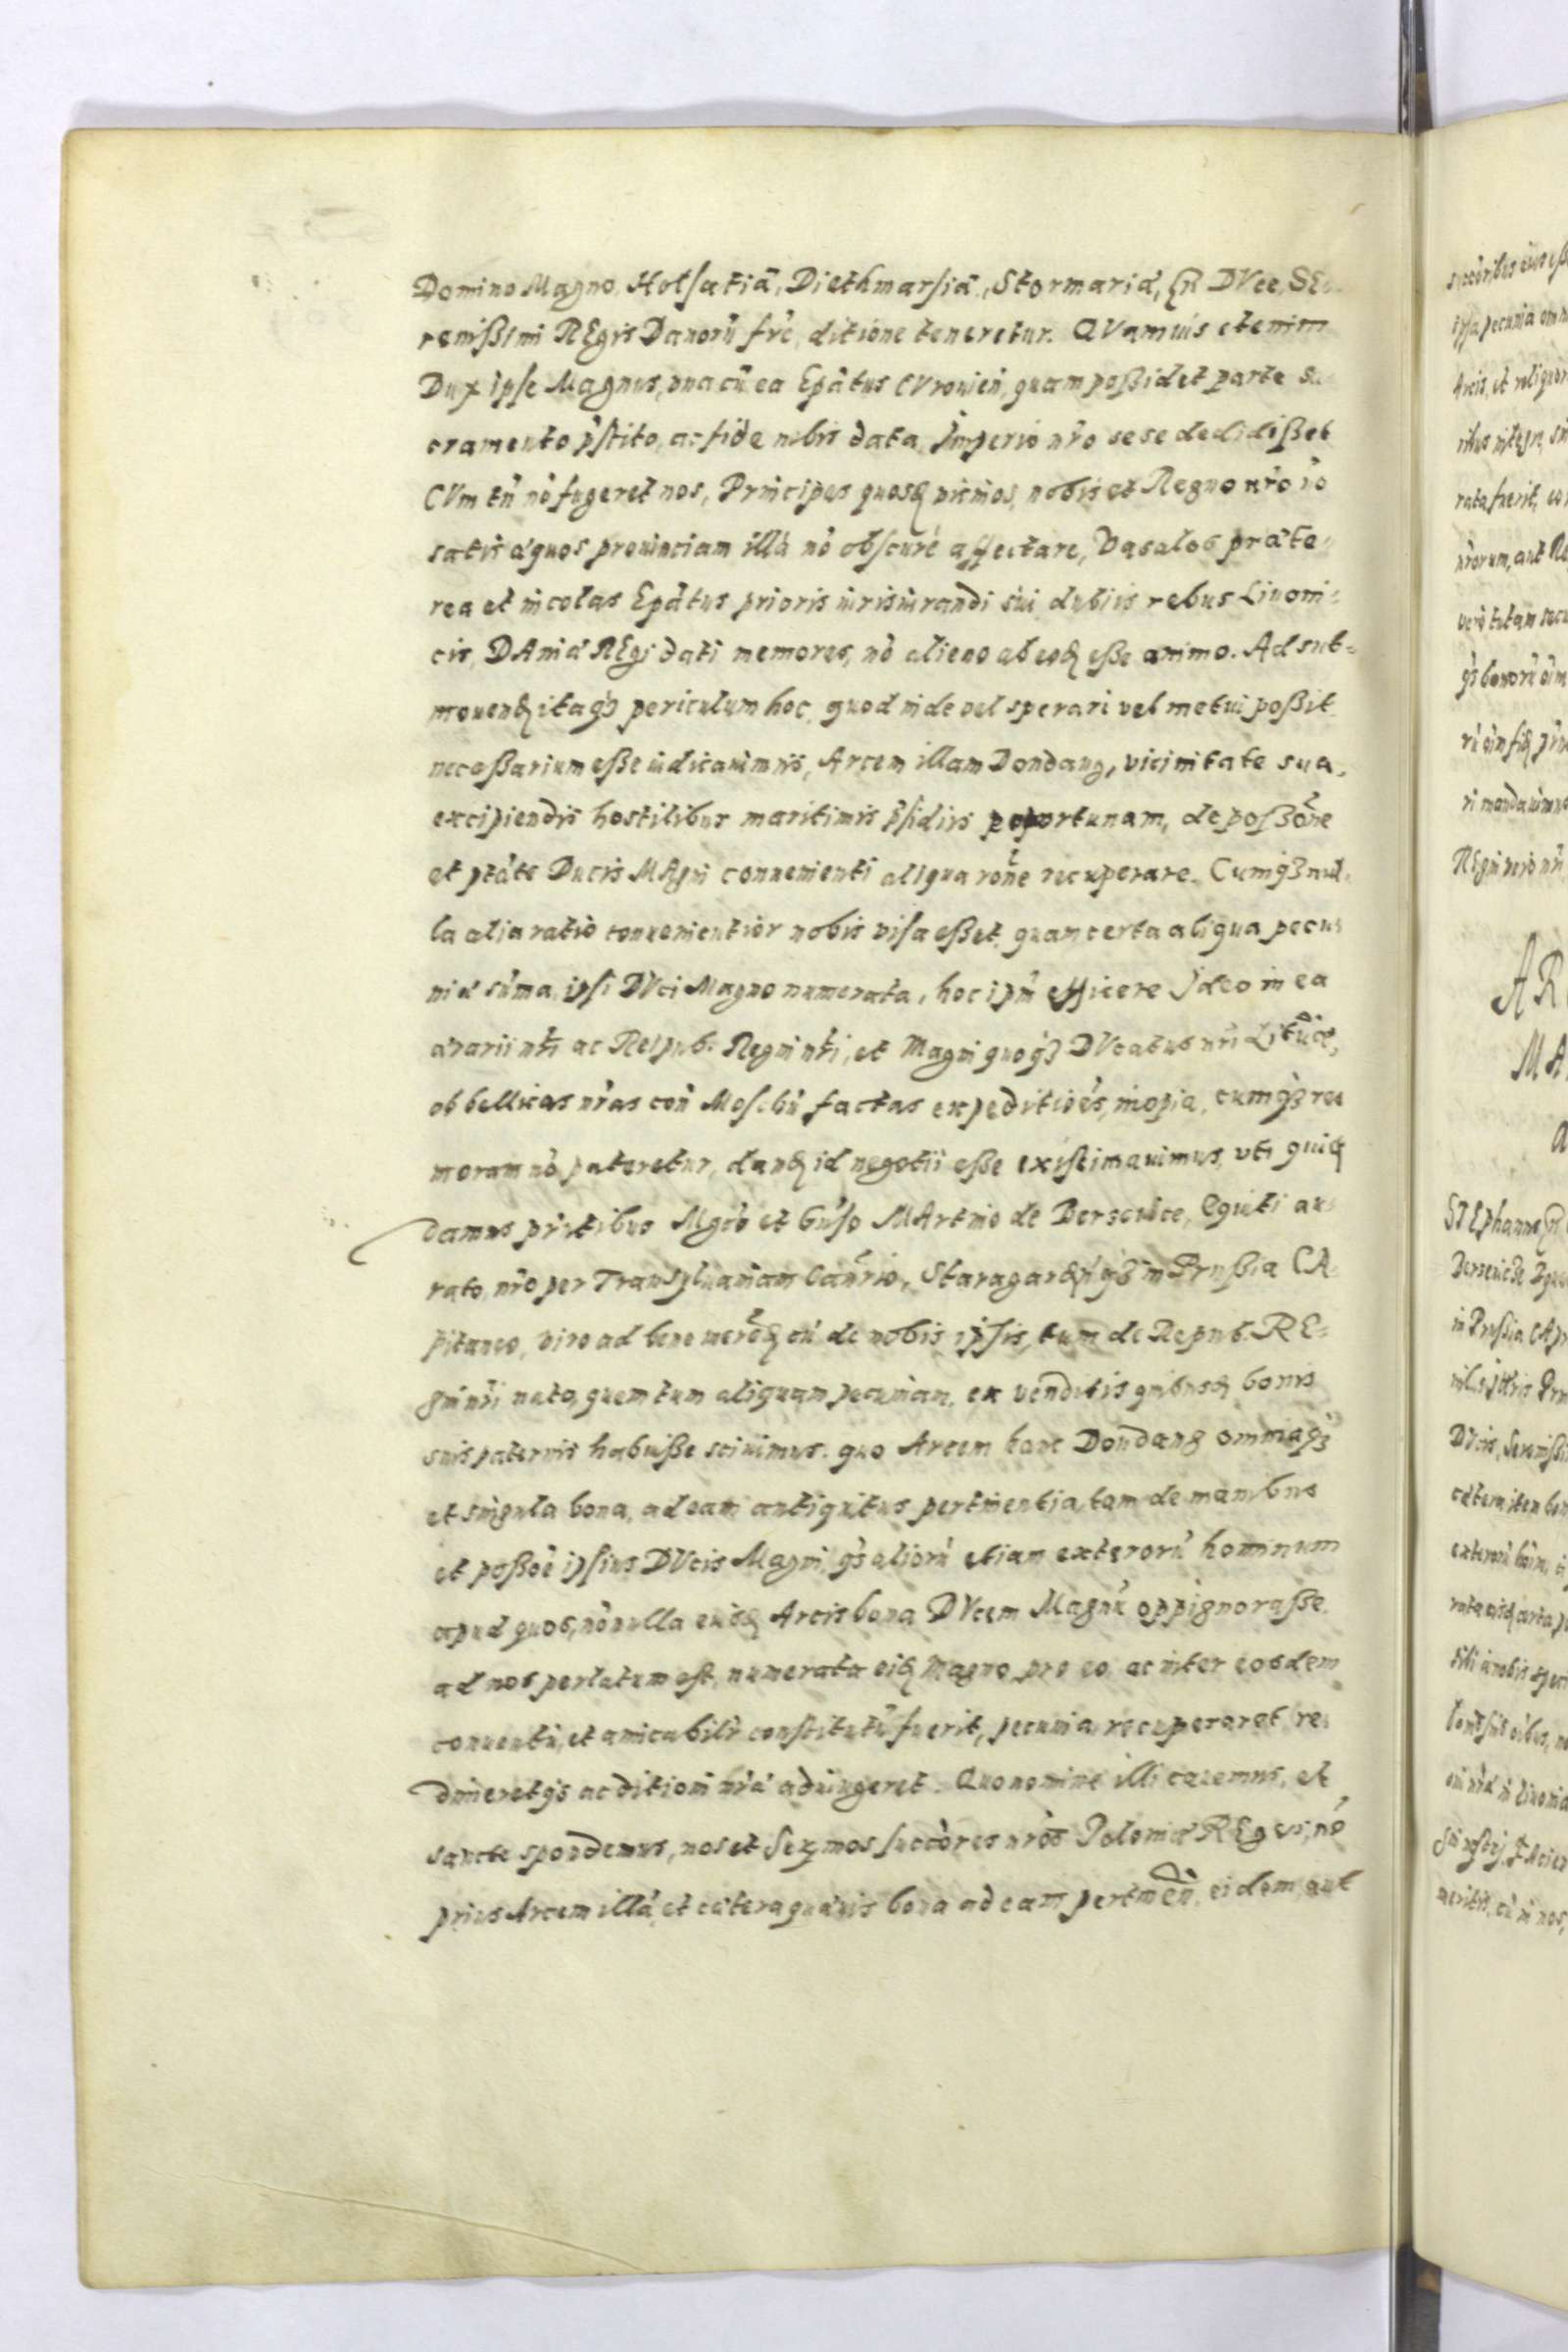 Domino Magno, Holsatiæ, Diethmarsiæ, Stormariæ, DVce, SE
renißimi REgis Danorū frē, ditione teneretur. QVamuis etenim
Dux ipse Magnus, vna cū ea Epātus CVronien, quam poßidet parte sa
cramento pstito, ac fide nobis data Imperio nro sese dedidißet
CVm tn nō fugeret nos, Principes quosd vicinos, nobis et Regno nro
satis æquos prouinciam illā nō obscurè affectare, Vasalos præte-
rea et incolas Epātus prioris iurisiurandi sui, dubiis rebus Liuoni-
cis, DAniæ REgi dati memores, nō alieno ab eod eße animo. Ad sub-
mouend itaq3 periculum hoc, quod inde vel sperari vel metui poßit
neceßarium eße iudicauimus, Arcem illam Dondang, vicinitate sua,
excipiendis hostilibus maritimis psidiis oportunam, de poßone
et ptāte Ducis MAgni conuenienti aliqua rone recuperare. Cumq3 nul-
la alia ratio conuenientior nobis visa eßet, quam certa aliqua pecu-
niæ suma, ipsi DVci Magno numerata, hoc ipm efficere Ideo in ea
ærarii nri ac Reipub. Regni nri, et Magni quoq3 DVcatus nri Lituæ,
ob bellicas nras con Moschū factas expeditiões, inopia, cumq3 res
moram nō pateretur, dand id negotii eße existimauimus, vti quid
damus pntibus Mgco et Gnso MArtino de Berseuice, Equiti au-
rato, nro per Transyluaniam Canrio, Staragardenq3 in Prußia CA-
pitaneo, viro ad bene merend cū de nobis ipsis, tum de Repub. RE-
gni nri nato, quem tum aliquam pecuniam, ex venditis quibusd bonis
suis paternis habuiße sciuimus. quo Arcem hanc Dondang omniaq3
et singula bona, ad eam antiquitus pertinentia, tam de manibus
et poßoe ipsius DVcis Magni, q̃s aliorū etiam exterorū hominum
apud quos, nōnulla eiusd Arcis bona DVcem Magnū oppignoraße
ad nos perlatum est, numerata eid Magno, pro eo, ac inter eosdem
conuentū, et amicabilr constitutū fuerit, pecunia, recuperaret re-
dimeretq3 ac ditioni nræ adiungeret. Quo nomine illi cauemus, et
sancte spondemus, nos et Sermos succores nros Poloniæ REges, nō
prius Arcem illā, et cætera quæuis bona ad eam pertinen, eidem aut